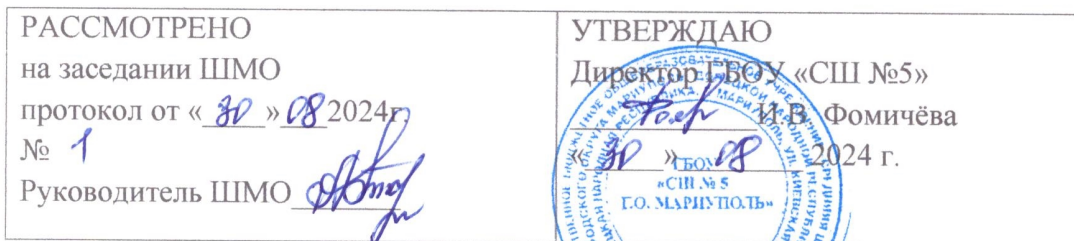 РАССМОТРЕНО
на заседании ШМО
протокол от «30» 08 2024г.
№ 1
Руководитель ШМО
УТВЕРЖДАЮ
Директор ГБОУ «СШ №5»
И.В. Фомичёва
«30» 08 2024 г.
ГБОУ
«СШ № 5
Г.О. МАРИУПОЛЬ»